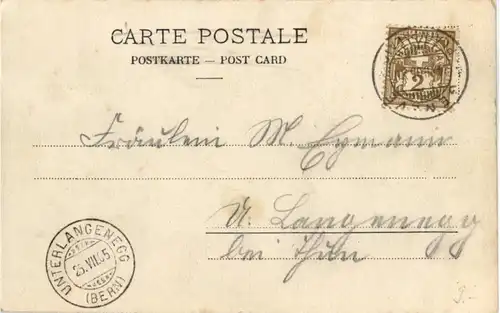 CARTE POSTALE
POSTKARTE — POST CARD
2
Fräulein M. Egmann
U. Langenegg
bei Thun
UNTERLANGENEGG
25.VII.05
(BERN)
3.-